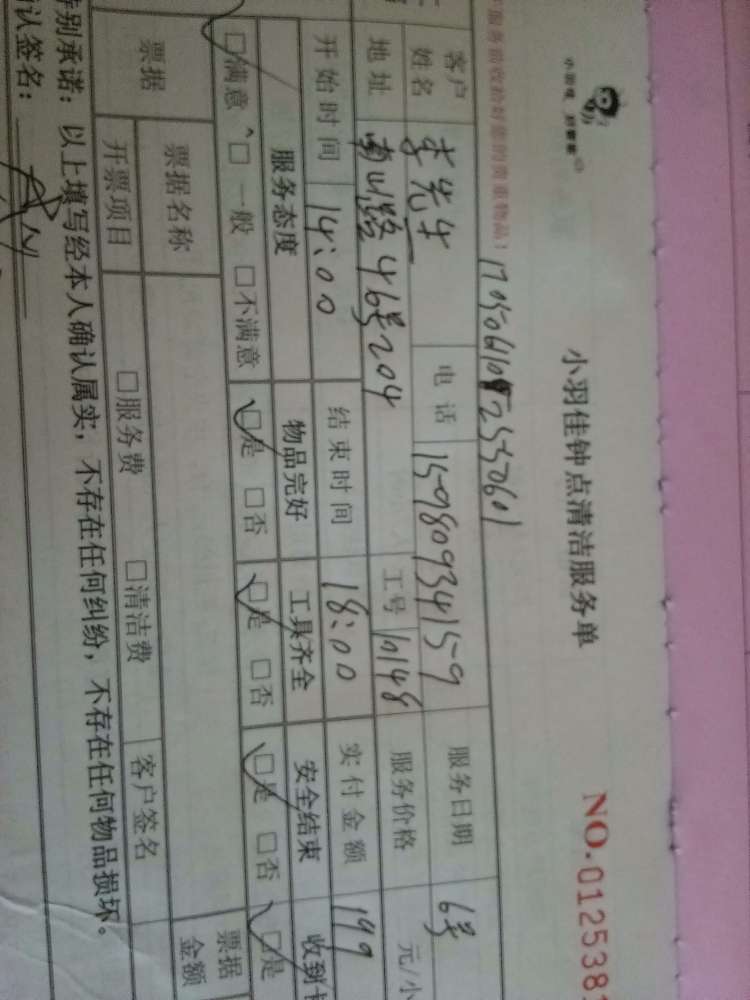 小羽佳钟点清洁服务单
NO.012538
服务前收拾好您的贵重物品！
客户姓名 李先生 电话 15980934159 服务日期 6号
地址 南山路46号204 工号 服务价格 元/小
开始时间 14:00 结束时间 18:00 实付金额 199
服务态度 物品完好 工具齐全 安全结束 收到
□满意 □一般 □不满意 □是 □否 □是 □否 □是 □否 □是
票据 票据名称 票据金额
开票项目 □服务费 □清洁费 客户签名
特别承诺：以上填写经本人确认属实，不存在任何纠纷，不存在任何物品损坏。
认签名：